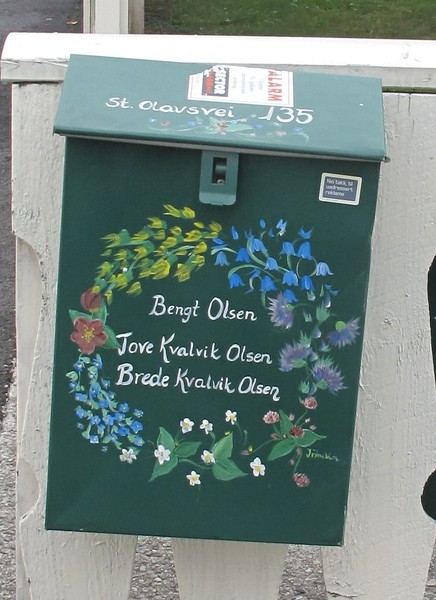 ALARM
SECTOR
St. Olavsvei 135
Nei takk, til
uadressert
reklame
Bengt Olsen
Tove Kvalvik Olsen
Brede Kvalvik Olsen